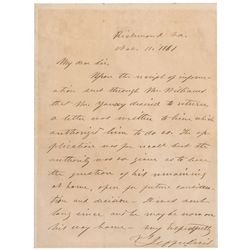 Richmond Va.
Nov. 11. 1861
My dear Sir.
Upon the receipt of informa-
tion sent through Mr Williams
that Mr Yancey desired to return
a letter was written to him which
authorized him to do so. The ap-
plication was for recall but the
authority was so given as to leave
the question of his remaining
at home, open for future considera-
tion and decision. It was sent
long since and he may be now on
his way home. Very respectfully